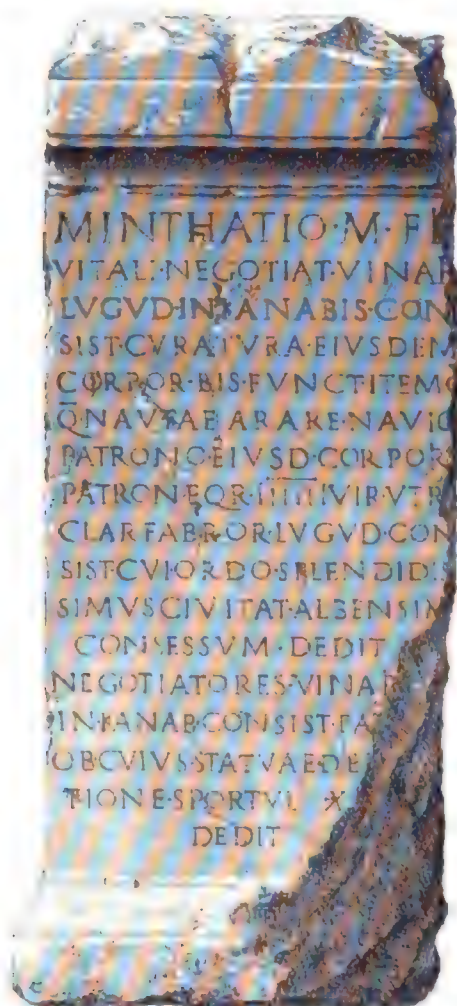 MINTHATIO·M·FI
VITALI·NEGOTIAT·VINAR
LVGVD·IN KANABIS·CON
SIST·CVRATVRA·EIVSDEM
CORPOR·BIS·FVNCT·ITEM
Q NAVTAE ARARE·NAVIG
PATRONO·EIVSD·CORPOR
PATRON·EQ R·IIIIIIVIR·VTR
CLAR·FABROR·LVGVD·CON
SIST·CVI·ORDO·SPLENDIDIS
SIMVS·CIVITAT·ALBENSIM
CONSESSVM·DEDIT
NEGOTIATORES·VINAR
IN KANAB·CONSIST·
OB CVIVS·STATVAE·DE
TIONE·SPORTVL · X
DEDIT